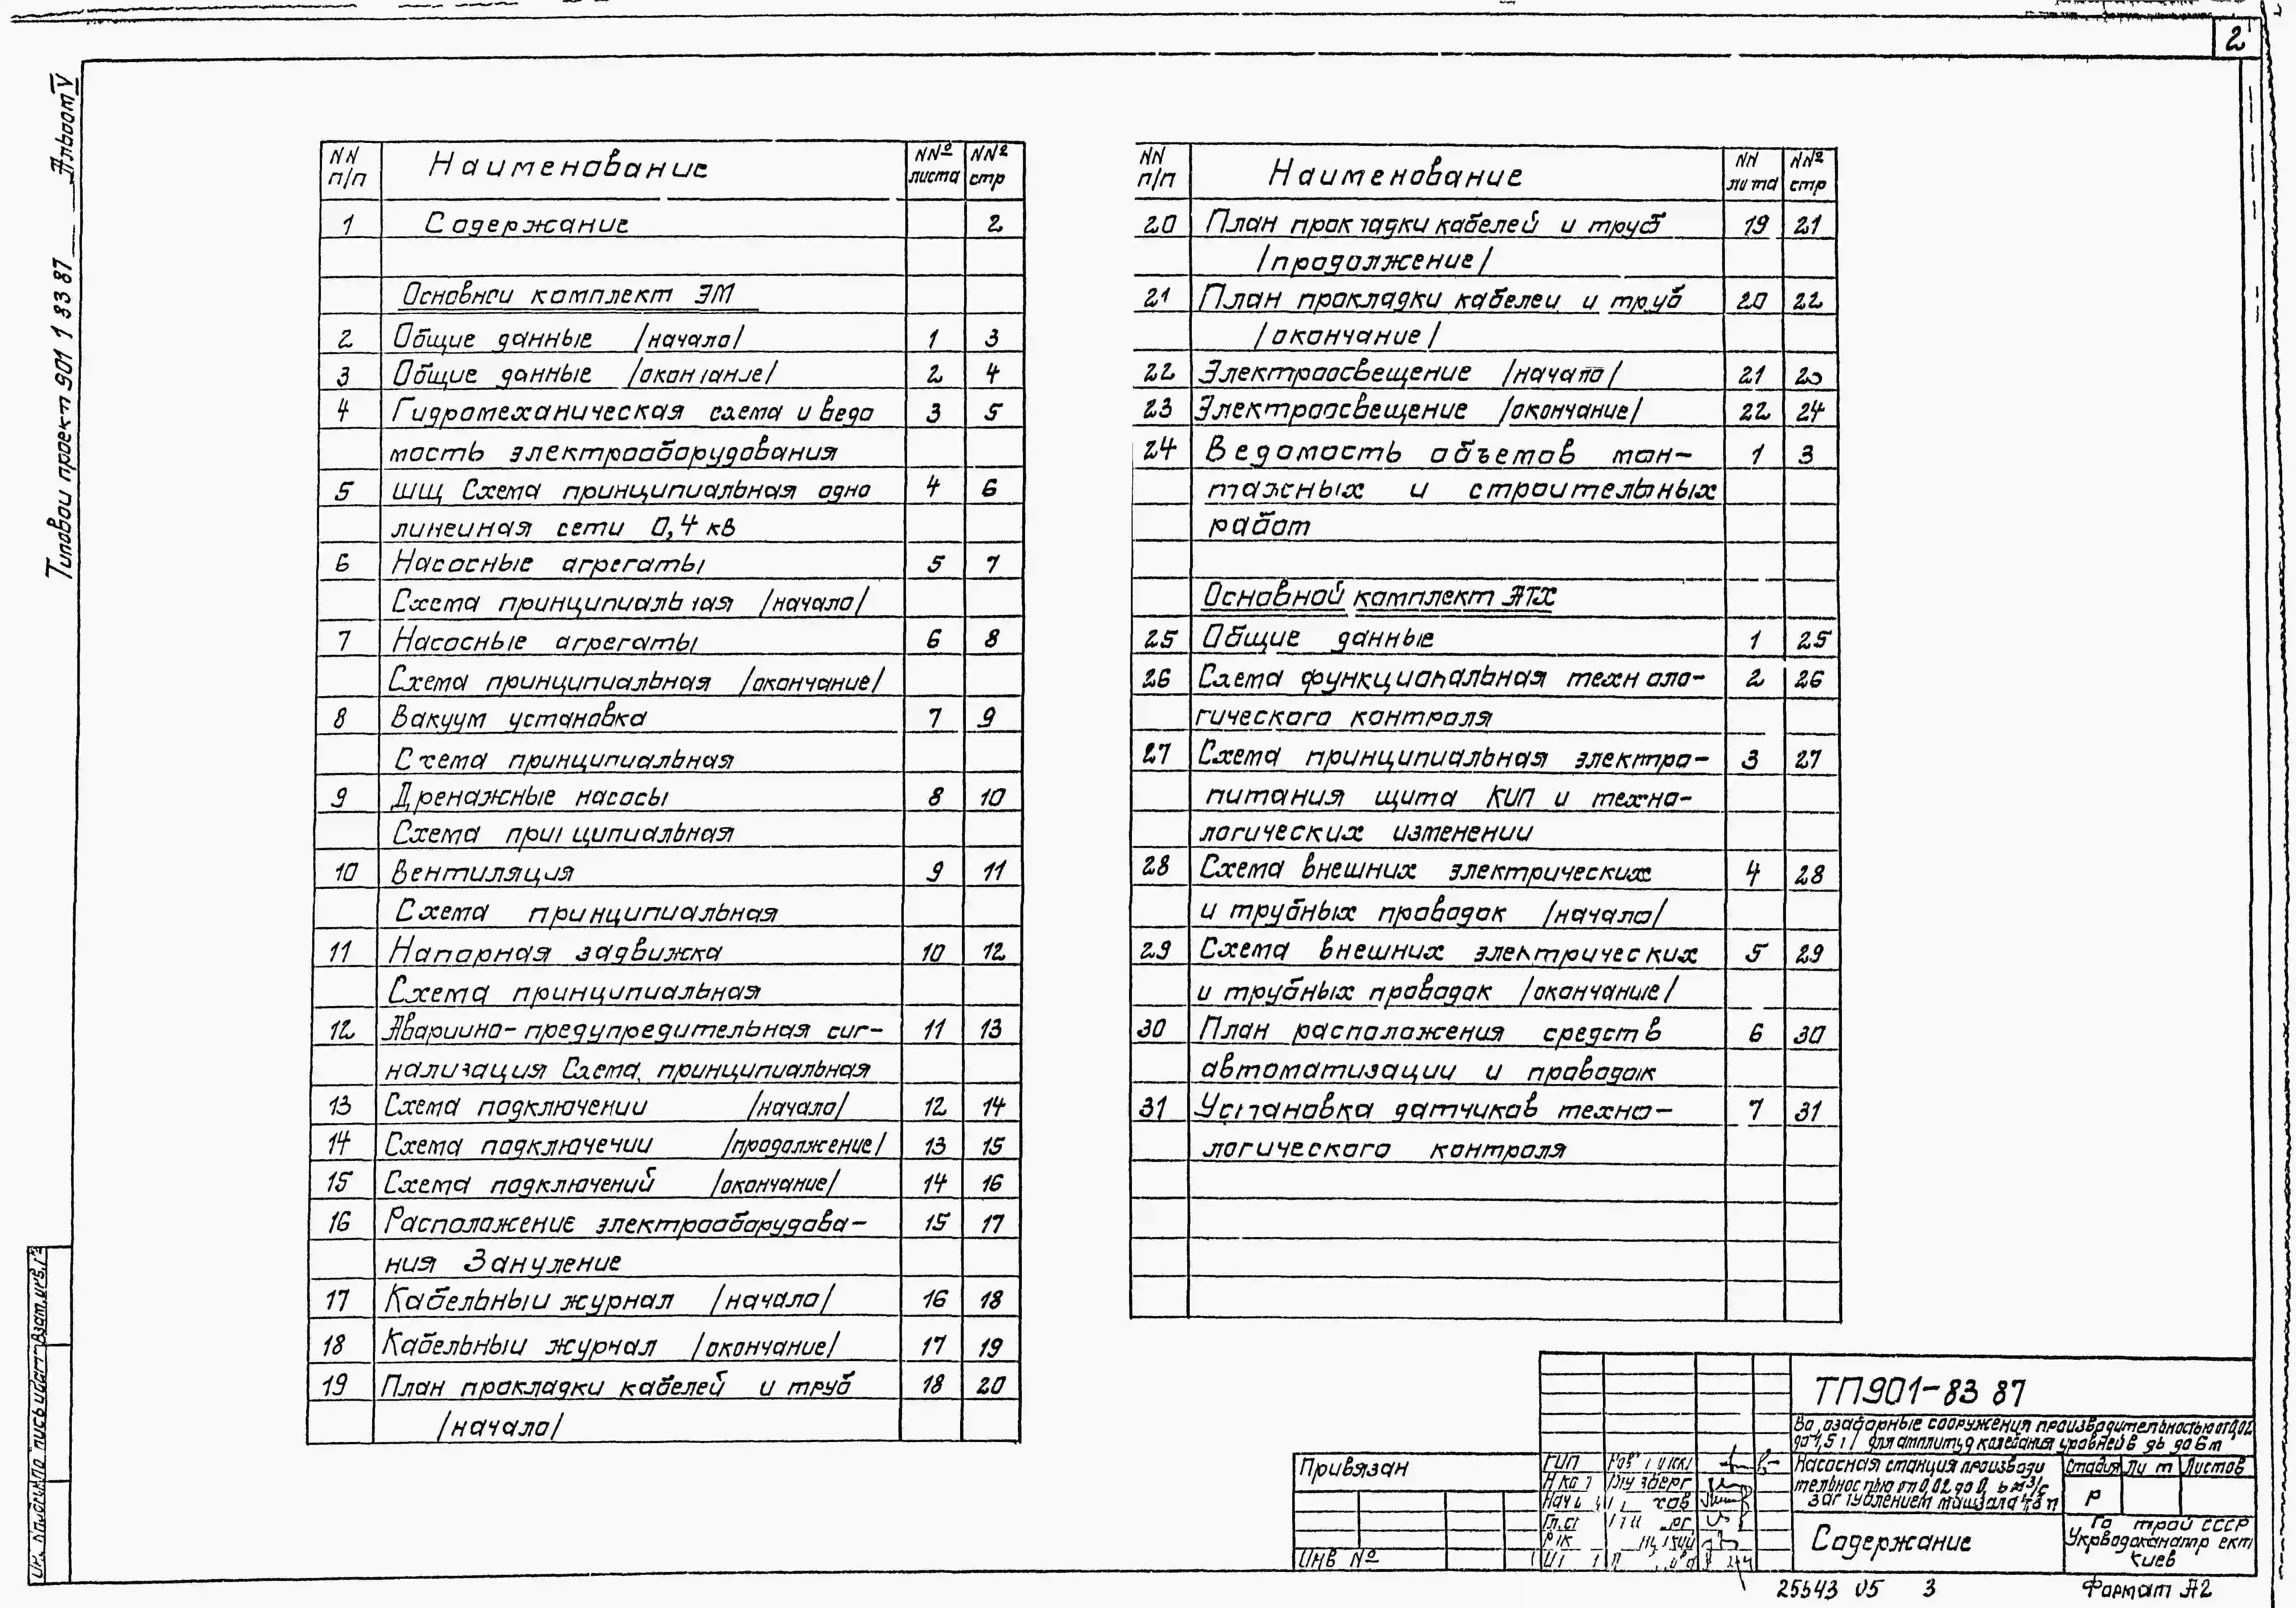 2
Типовой проект 901 1 33 87 Альбом V
NN п/п Наименование NNº листа NNº стр
1 Содержание 2
Основной комплект ЭМ
2 Общие данные /начало/ 1 3
3 Общие данные /окончание/ 2 4
4 Гидромеханическая схема и ведо 3 5
мость электрооборудования
5 ШЩ Схема принципиальная одно 4 6
линейная сети 0,4 кв
6 Насосные агрегаты 5 7
Схема принципиальная /начало/
7 Насосные агрегаты 6 8
Схема принципиальная /окончание/
8 Вакуум установка 7 9
Схема принципиальная
9 Дренажные насосы 8 10
Схема принципиальная
10 Вентиляция 9 11
Схема принципиальная
11 Напорная задвижка 10 12
Схема принципиальная
12 Аварийно-предупредительная сиг- 11 13
нализация Схема принципиальная
13 Схема подключений /начало/ 12 14
14 Схема подключений /продолжение/ 13 15
15 Схема подключений /окончание/ 14 16
16 Расположение электрооборудова- 15 17
ния Зануление
17 Кабельный журнал /начало/ 16 18
18 Кабельный журнал /окончание/ 17 19
19 План прокладки кабелей и труб 18 20
/начало/
NN п/п Наименование NN листа NNº стр
20 План прокладки кабелей и труб 19 21
/продолжение/
21 План прокладки кабелей и труб 20 22
/окончание/
22 Электроосвещение /начало/ 21 23
23 Электроосвещение /окончание/ 22 24
24 Ведомость объемов мон- 1 3
тажных и строительных
работ
Основной комплект АТХ
25 Общие данные 1 25
26 Схема функциональная техноло- 2 26
гического контроля
27 Схема принципиальная электро- 3 27
питания щита КИП и техно-
логических изменений
28 Схема внешних электрических 4 28
и трубных проводок /начало/
29 Схема внешних электрических 5 29
и трубных проводок /окончание/
30 План расположения средств 6 30
автоматизации и проводок
31 Установка датчиков техно- 7 31
логического контроля
ТП901-83 87
Водозаборные сооружения производительностью от 0,02
до 1,5 для амплитуд колебания уровней в до 6м
Насосная станция произво­ди
тельностью от 0,02 до м³/с
заглублением машзала
Стадия Лист Листов
Р
Содержание
Госстрой СССР
Укрводоканалпроект
Киев
Привязан
Инв Nº
ГИП
Взам.инв.
Подпись и дата
Формат А2